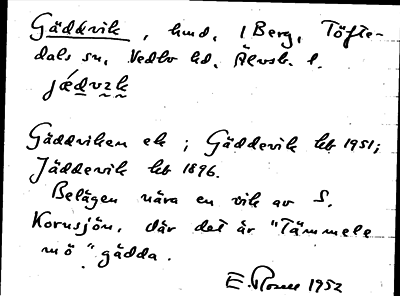 Gäddvik, hmd. i Berg, Töfte-
dals sn, Vedbo hd, Älvsb. l.
jǽdvɪk
Gäddviken ek; Gäddevik kb 1951;
Jäddevik kb 1896.
Belägen nära en vik av S.
Kornsjön, där det är "Tämmele
mö" gädda.
E. Rosell 1952